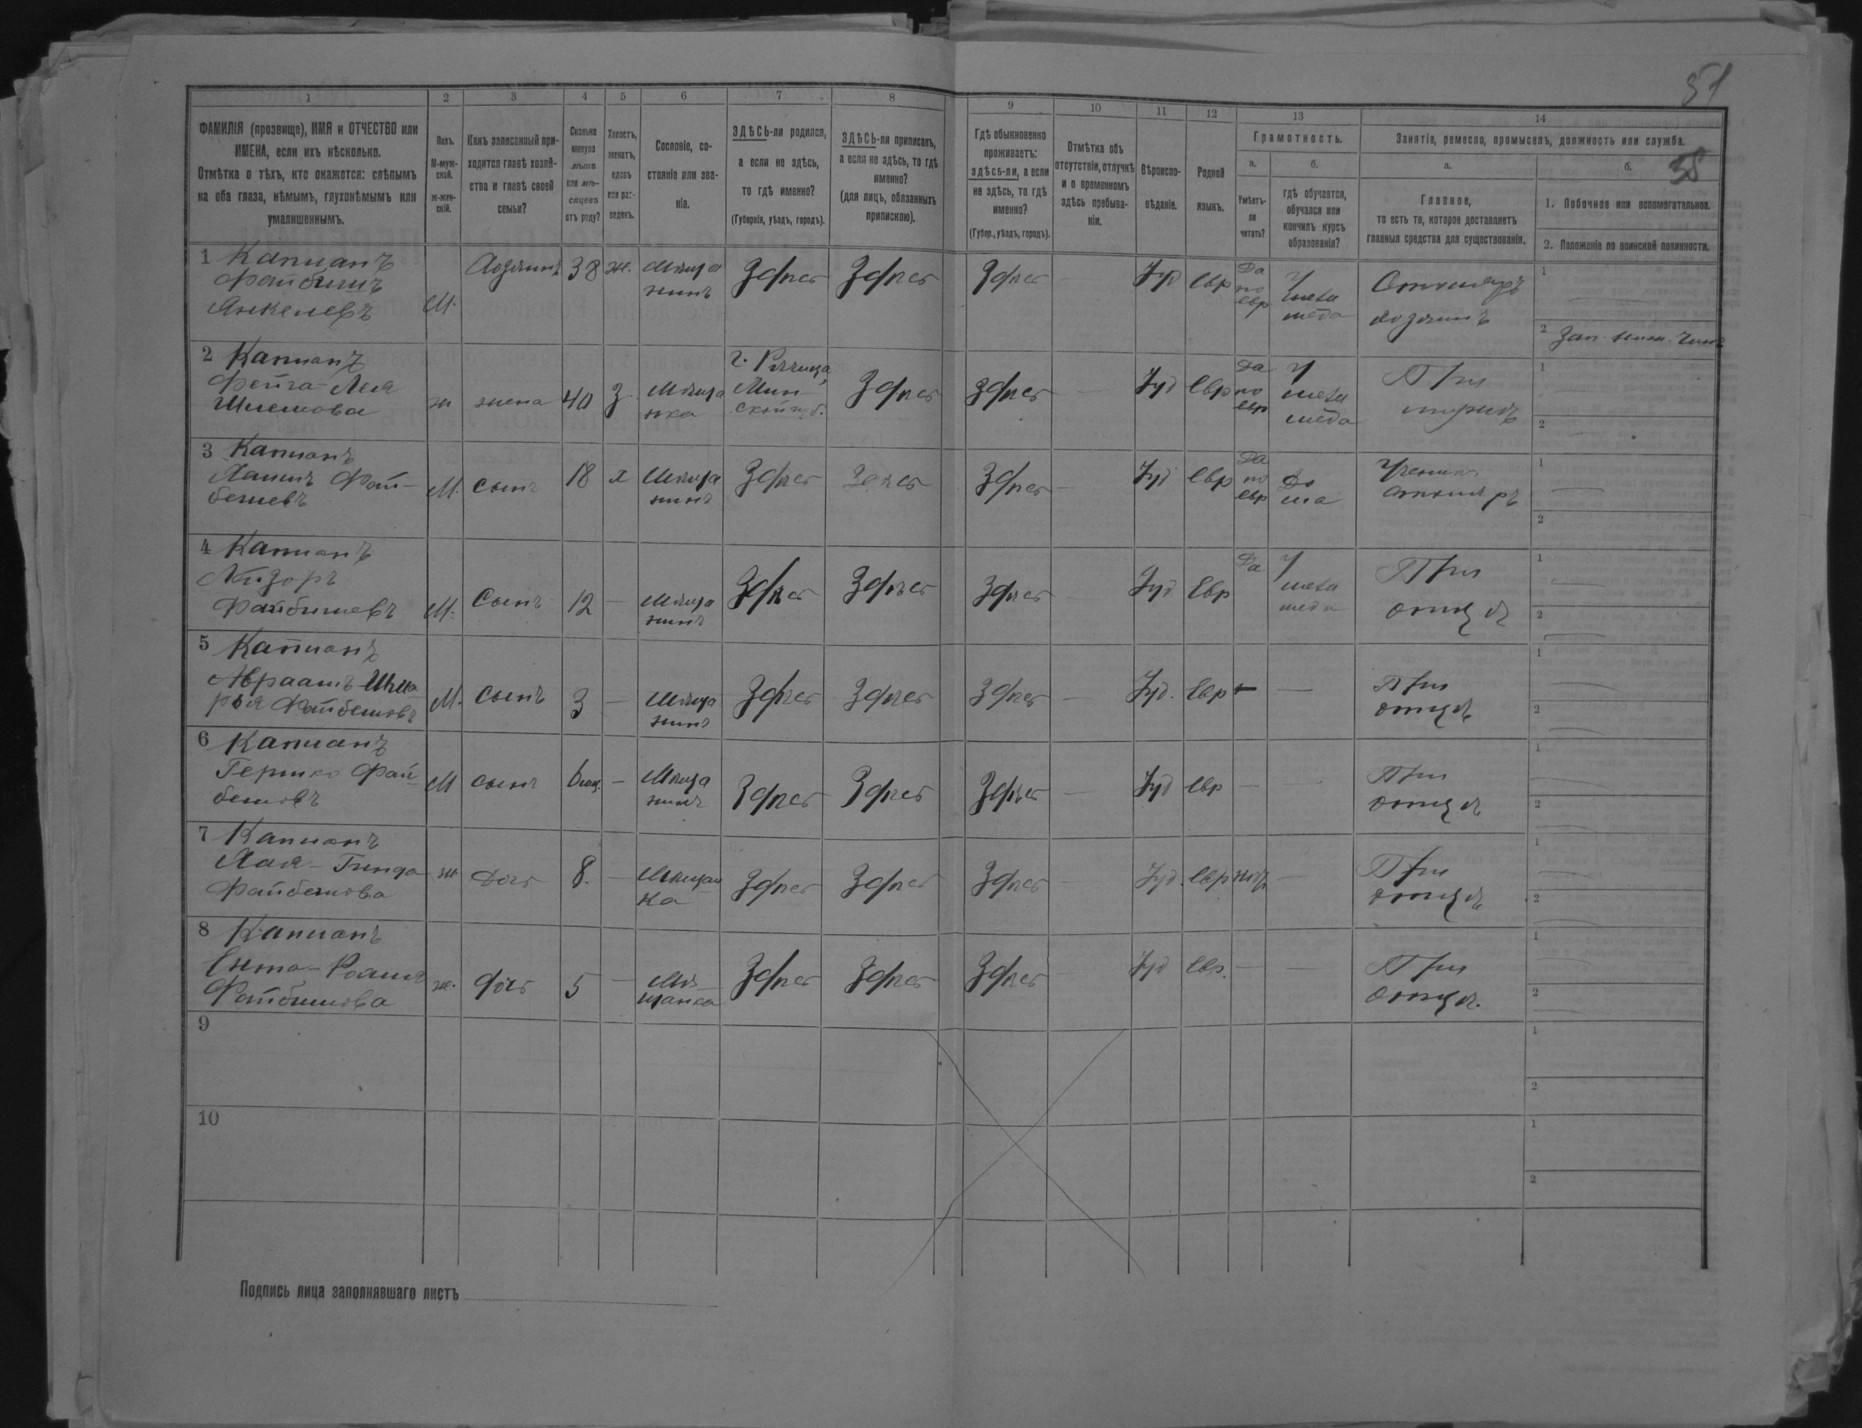 51
38
1 2 3 4 5 6 7 8 9 10 11 12 13 14
ФАМИЛІЯ (прозвище), ИМЯ и ОТЧЕСТВО или
ИМЕНА, если ихъ нѣсколько.
Отмѣтка о тѣхъ, кто окажется: слѣпымъ
на оба глаза, нѣмымъ, глухонѣмымъ или
умалишеннымъ.
Полъ.
М-муж-
ской.
ж-жен-
скій.
Какъ записанный при-
ходится главѣ хозяй-
ства и главѣ своей
семьи?
Сколько
минуло
лѣтъ
или мѣ-
сяцевъ
отъ роду?
Холостъ,
женатъ,
вдовъ
или раз-
веденъ.
Сословіе, со-
стояніе или зва-
ніе.
ЗДѢСЬ-ли родился,
а если не здѣсь,
то гдѣ именно?
(Губернія, уѣздъ, городъ).
ЗДѢСЬ-ли приписанъ,
а если не здѣсь, то гдѣ
именно?
(для лицъ, обязанныхъ
припискою).
Гдѣ обыкновенно
проживаетъ:
здѣсь-ли, а если
не здѣсь, то гдѣ
именно?
(Губер., уѣздъ, городъ).
Отмѣтка объ
отсутствіи, отлучкѣ
и о временномъ
здѣсь пребыва-
ніи.
Вѣроиспо-
вѣданіе.
Родной
языкъ.
Грамотность.
а.
Умѣетъ-
ли
читать?
б.
гдѣ обучается,
обучался или
кончилъ курсъ
образованія?
Занятіе, ремесло, промыселъ, должность или служба.
а.
Главное,
то есть то, которое доставляетъ
главныя средства для существованія.
б.
1. Побочное или вспомогательное.
2. Положеніе по воинской повинности.
1 Капланъ
Файбишъ
Янкелевъ
М.
Хозяинъ
38
ж.
Мѣща
нинъ
Здѣсь
Здѣсь
Здѣсь
Іуд
Евр
Да
по
евр
У
мела
меда
Столяръ
хозяинъ
1
2 Зап. нижн. чинъ
2 Капланъ
Фейга-Лея
Шлемова
ж
жена
40
З
Мѣща
нка
г. Рѣчица,
Мин-
ской губ.
Здѣсь
Здѣсь
Іуд
Евр
Да
по
евр
У
мела
меда
При
мужѣ
1
2
3 Капланъ
Хаимъ Фай-
бишевъ
М.
сынъ
18
х
Мѣща
нинъ
Здѣсь
Здѣсь
Здѣсь
Іуд
Евр
Да
по
евр
До
ма
Ученикъ
столяръ
1
2
4 Капланъ
Лизоръ
Файбишевъ
М.
сынъ
12
Мѣща
нинъ
Здѣсь
Здѣсь
Здѣсь
Іуд
Евр
Да
У
мела
меда
При
отцѣ
1
2
5 Капланъ
Абраамъ-Шма
рья Файбишовъ
М.
сынъ
3
Мѣща
нинъ
Здѣсь
Здѣсь
Здѣсь
Іуд.
Евр
При
отцѣ
1
2
6 Капланъ
Гершко Фай-
бишовъ
М
сынъ
6 мѣс.
Мѣща
нинъ
Здѣсь
Здѣсь
Здѣсь
Іуд
Евр
При
отцѣ
1
2
7 Капланъ
Хая-Гинда
Файбишова
ж
дочь
8.
Мѣщан
ка
Здѣсь
Здѣсь
Здѣсь
Іуд.
Евр
нѣтъ
При
отцѣ
1
2
8 Капланъ
Файбишова
ж.
дочь
5
Мѣ
щанка
Здѣсь
Здѣсь
Здѣсь
Іуд
Евр.
При
отцѣ.
1
2
9
1
2
10
1
2
Подпись лица заполнявшаго листъ